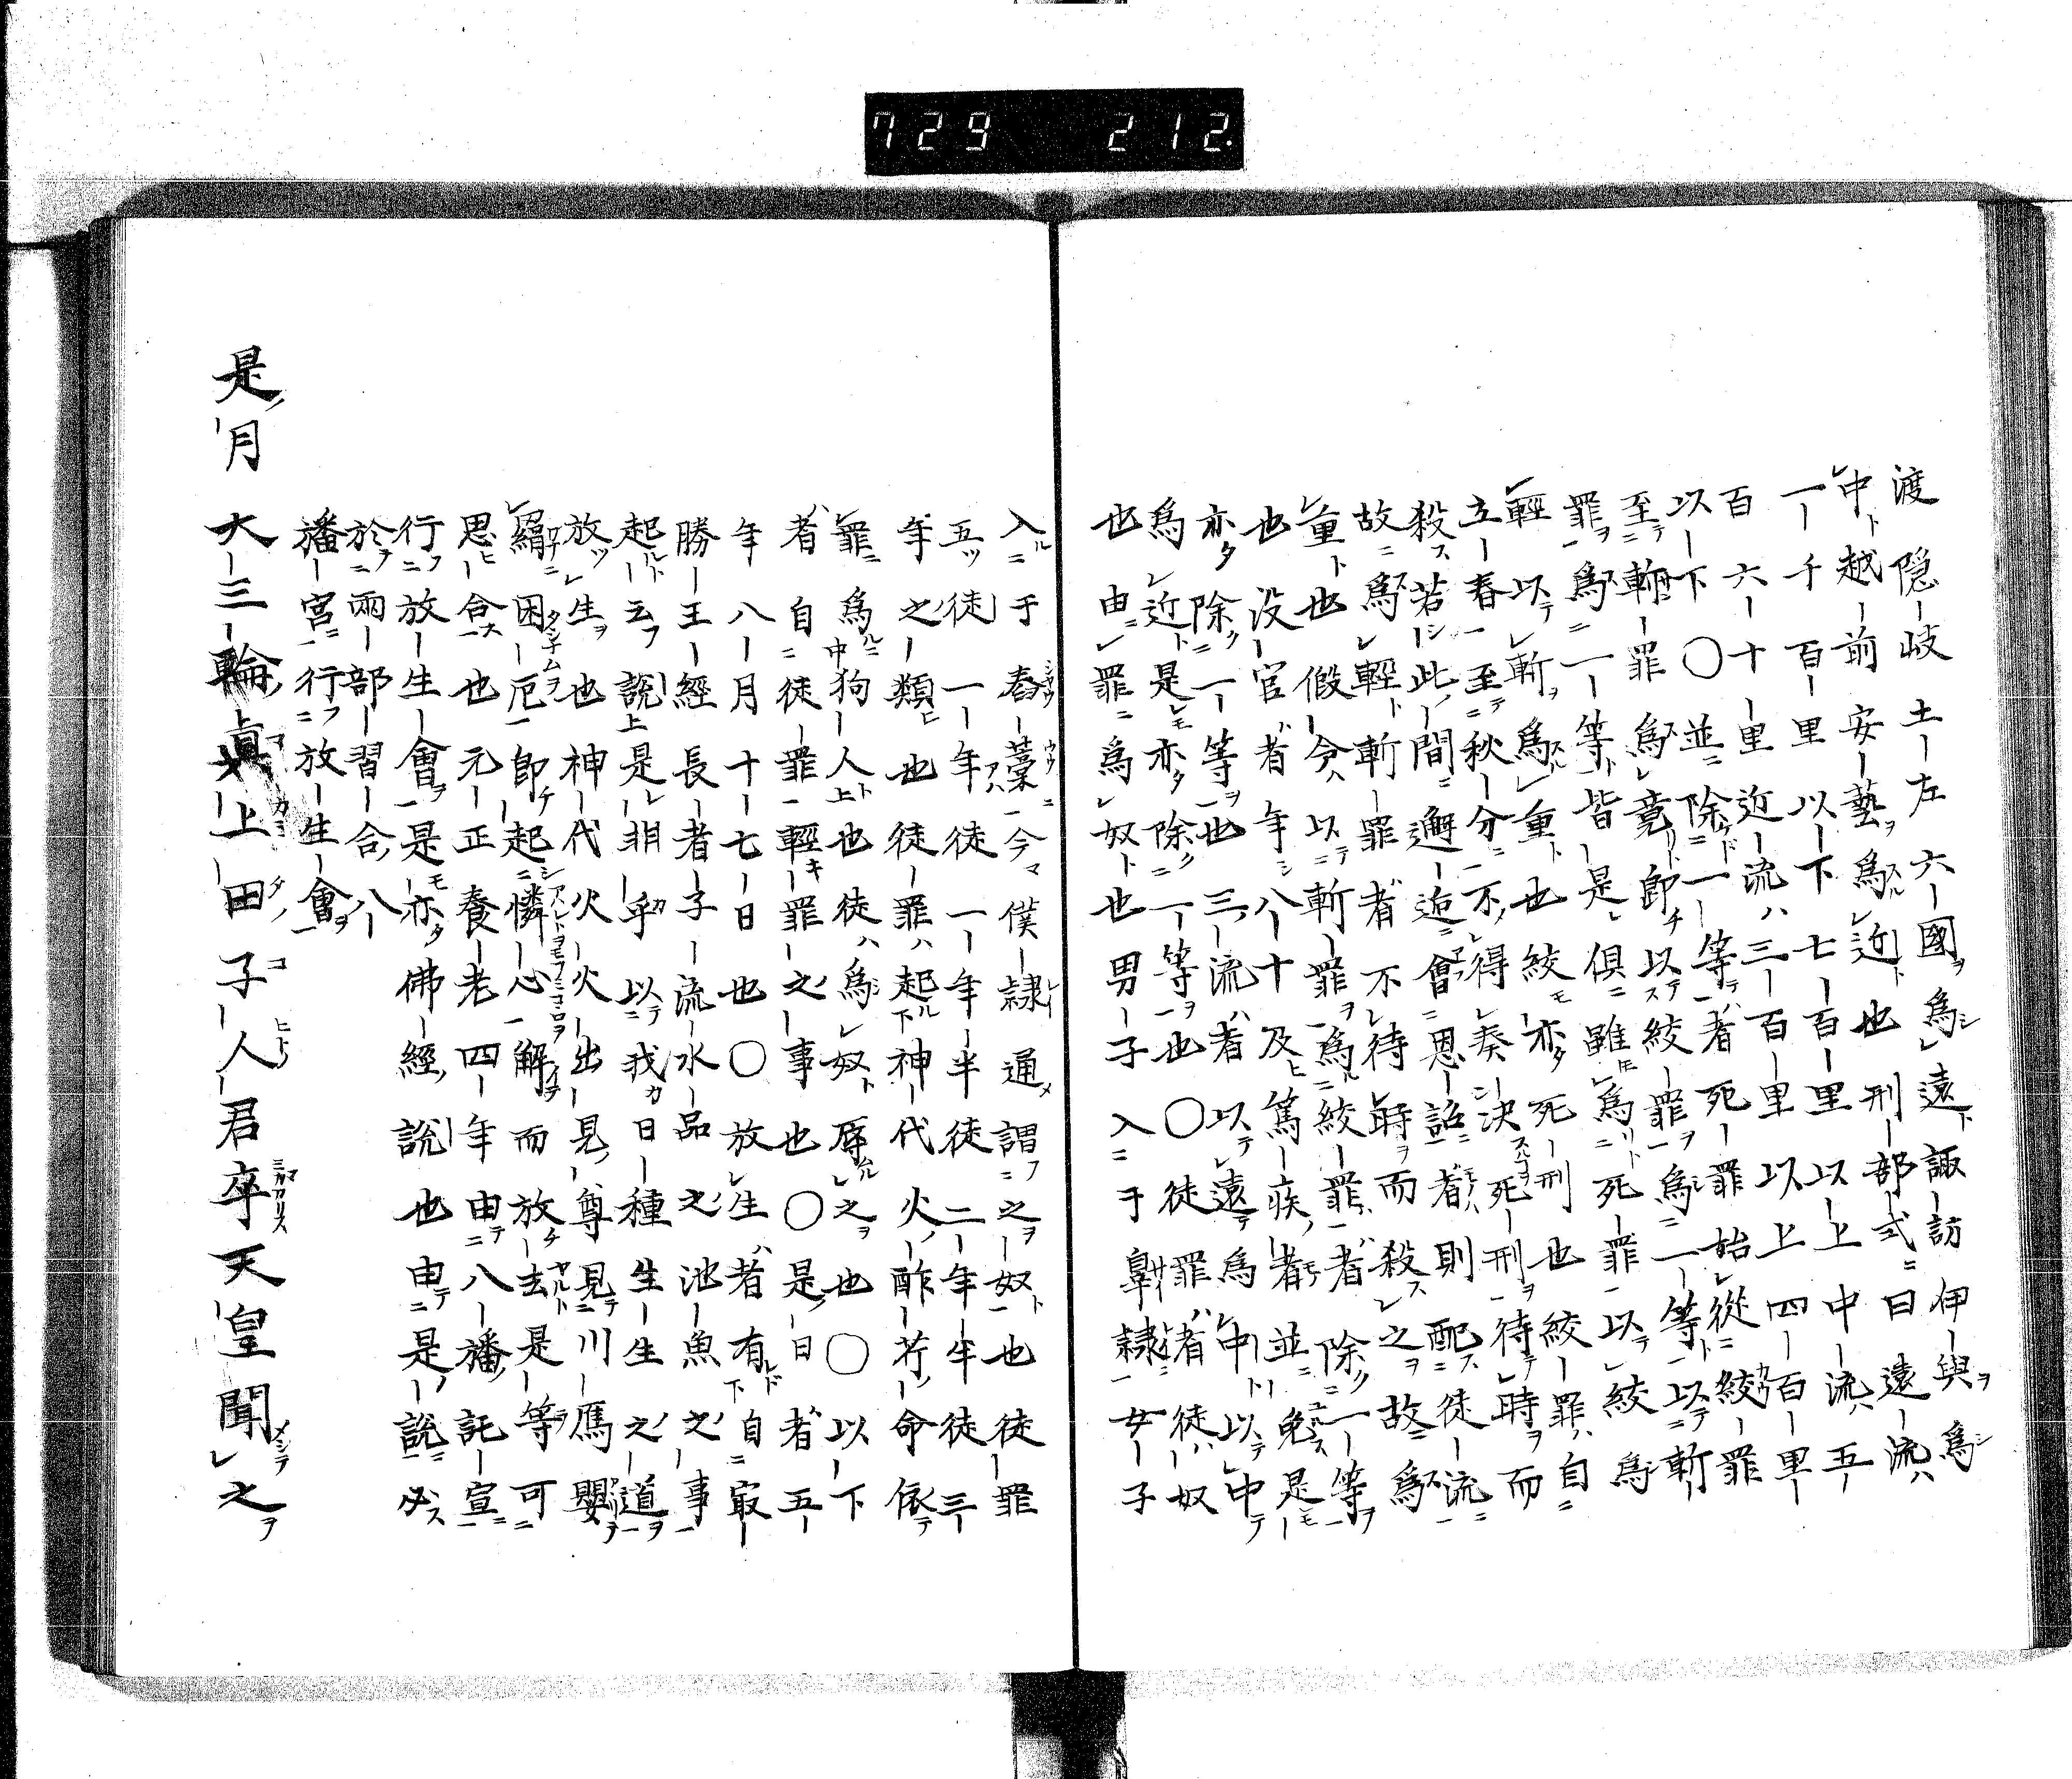 729 212.
渡隠岐土左六國爲遠諏訪伊與爲
中越前安藝爲近也刑部式曰遠流
一千百里以下七百里以上中流五
百六十里近流三百里以上四百里
以下〇並除一等者死罪始從絞罪
至斬罪爲竟即以絞罪爲一等以斬
罪爲一等皆是俱雖爲死罪以絞爲
輕以斬爲重也絞亦死刑也絞罪自
立春至秋分不得奏決死刑待時而
殺若此間邂逅會恩詔者則配徒流
故爲輕斬罪者不待時而殺之故爲
重也假令以斬罪爲絞罪者除一等
也没官者年八十及篤疾者並免是
亦除一等也三流者以遠爲中以中
爲近是亦除一等也〇徒罪者徒奴
也由罪爲奴也男子入于辠隷女子
入于舂藁今僕隷通謂之奴也徒罪
五徒一年徒一年半徒二年徒三
年之類也徒罪起神代火酢芹命依
罪爲狗人也徒爲奴辱之也〇以下
者自徒罪輕罪之事也〇是日者五
年八月十七日也〇放生者有自最
勝王經長者子流水品之池魚之事
起云説是非乎以我日種生生之道
放生也神代火火出見尊見川鴈嬰
羂困厄即起憐心解而放去是等可
思合也元正養老四年由八幡託宣
行放生會是亦佛經説也由是説必
於兩部習合八
幡宮行放生會
是月大三輪眞上田子人君卒天皇聞之